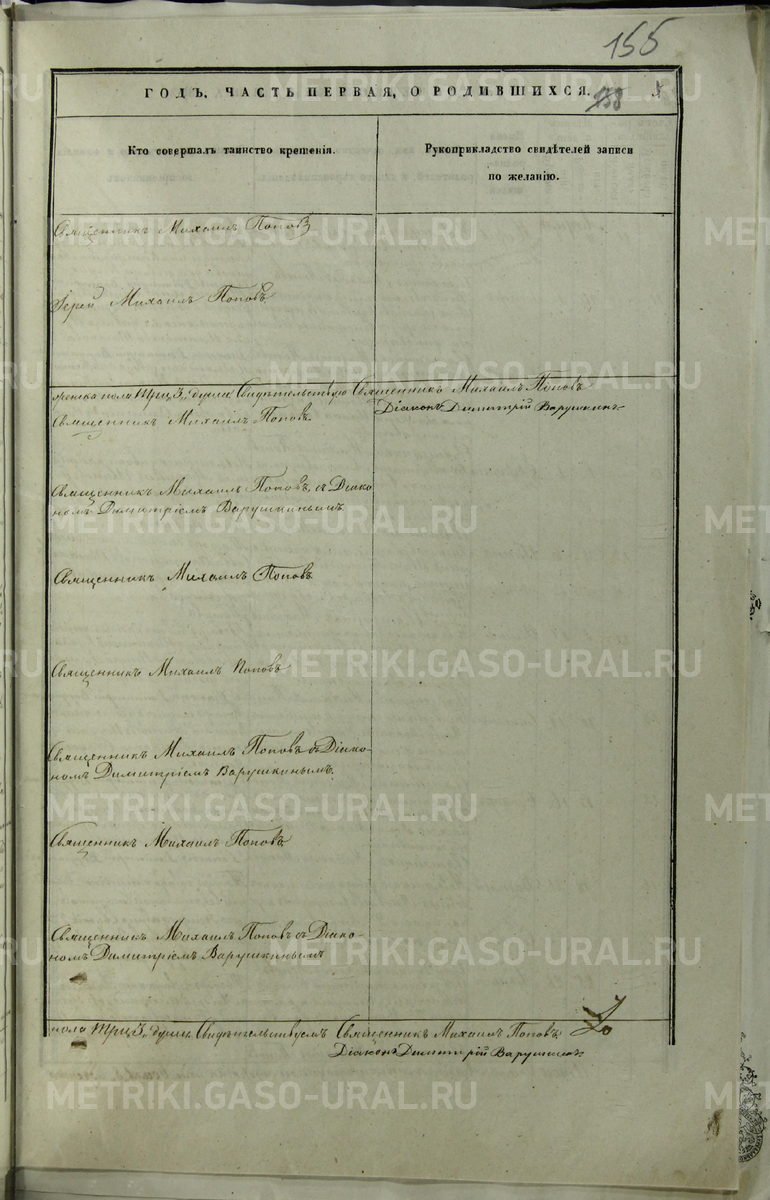 155
ГОДЪ, ЧАСТЬ ПЕРВАЯ, О РОДИВШИХСЯ.
158
Кто совершалъ таинство крещенія.
Рукоприкладство свидѣтелей записи
по желанію.
Священникъ Михаилъ Поповъ
Іерей Михаилъ Поповъ
пола три 3, души Свидѣтельствую Священникъ Михаилъ Поповъ
Діаконъ Димитрій Варушкинъ
Священникъ Михаилъ Поповъ.
Священникъ Михаилъ Поповъ, съ Діако-
номъ Димитріемъ Варушкинымъ
Священникъ Михаилъ Поповъ
Священникъ Михаилъ Поповъ
Священникъ Михаилъ Поповъ съ Діако-
номъ Димитріемъ Варушкинымъ.
Священникъ Михаилъ Поповъ
Священникъ Михаилъ Поповъ съ Діако-
номъ Димитріемъ Варушкинымъ
пола три 3, души, Свидѣтельствуемъ Священникъ Михаилъ Поповъ
Діаконъ Димитрій Варушкинъ
METRIKI.GASO-URAL.RU